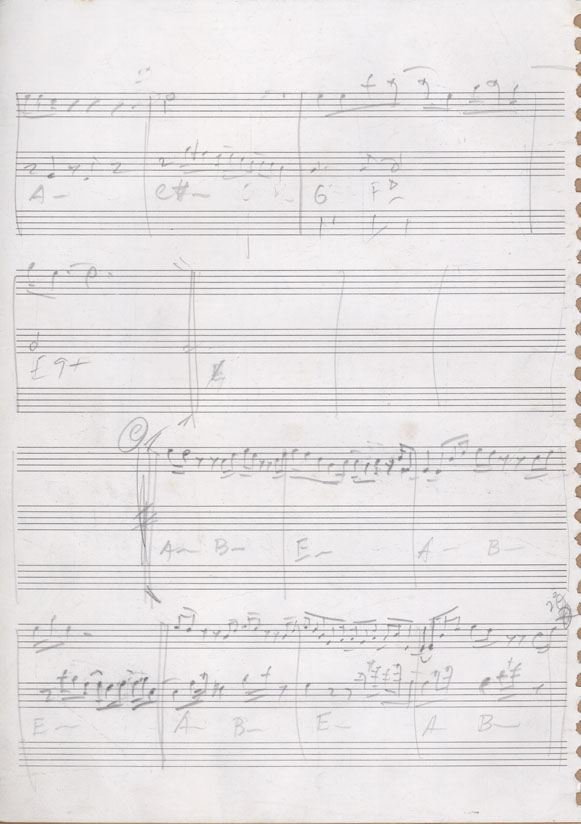 A- C#- G F-
E9+
C
A- B- E- A- B-
E- A- B- E- A B-